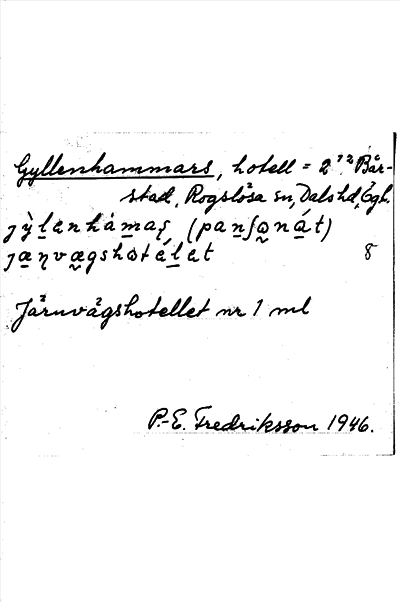 Gyllenhammars, hotell = 2¹² Bår-
stad, Rogslösa sn, Dals hd, Ögl.
jỳlanhámaş (panʃonát)
jæŋvægshotélet 8
Järnvägshotellet nr 1 ml
P.-E. Fredriksson 1946.